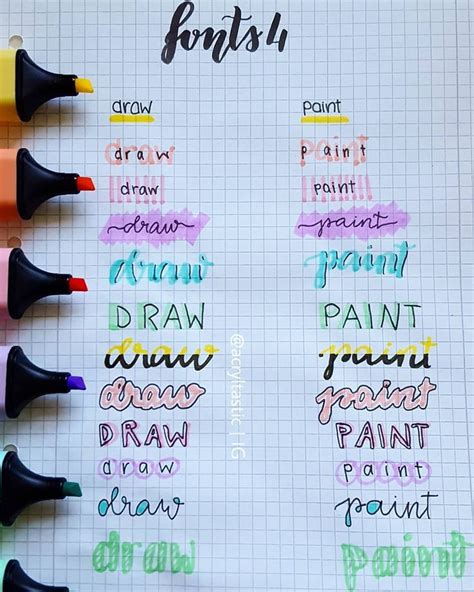 fonts 4
draw paint
draw paint
draw paint
draw paint
draw paint
DRAW PAINT
draw paint
draw paint
DRAW PAINT
draw paint
draw paint
draw paint
@acryltastic | IG